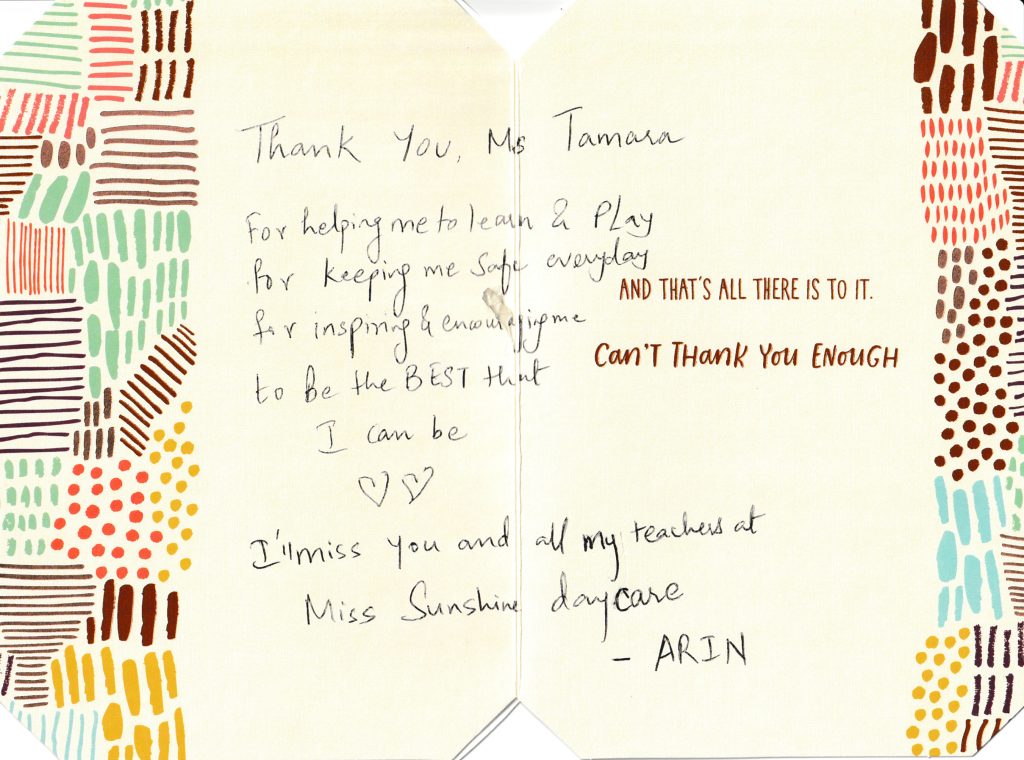 Thank You, Ms Tamara
For helping me to learn & Play
for keeping me safe everyday
for inspiring & encouraging me
to be the BEST that
I can be
AND THAT'S ALL THERE IS TO IT.
CAN'T THANK YOU ENOUGH
I'll miss you and all my teachers at
Miss Sunshine daycare
- ARIN